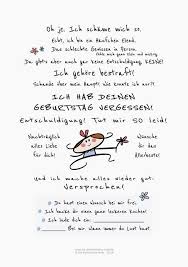 Oh je. Ich schäme mich so.
Echt, ich bin ein Häufchen Elend.
Das schlechte Gewissen in Person.
Da gibt's aber auch gar keine Entschuldigung. KEINE!
Ich gehöre bestraft!
Schande über mein Haupt! Wie konnte ich nur!!!
ICH HAB DEINEN
GEBURTSTAG VERGESSEN!
Entschuldigung! Tut mir so leid!
Nachträglich
alles Liebe
für dich!
Wünsche
für das
Allerbeste!
Und ich mache alles wieder gut.
Versprochen!
Du hast einen Wunsch bei mir frei.
Ich backe dir einen ganz leckeren Kuchen!
Ich lade dich ein:
Bei mir. Wann immer du Lust hast.